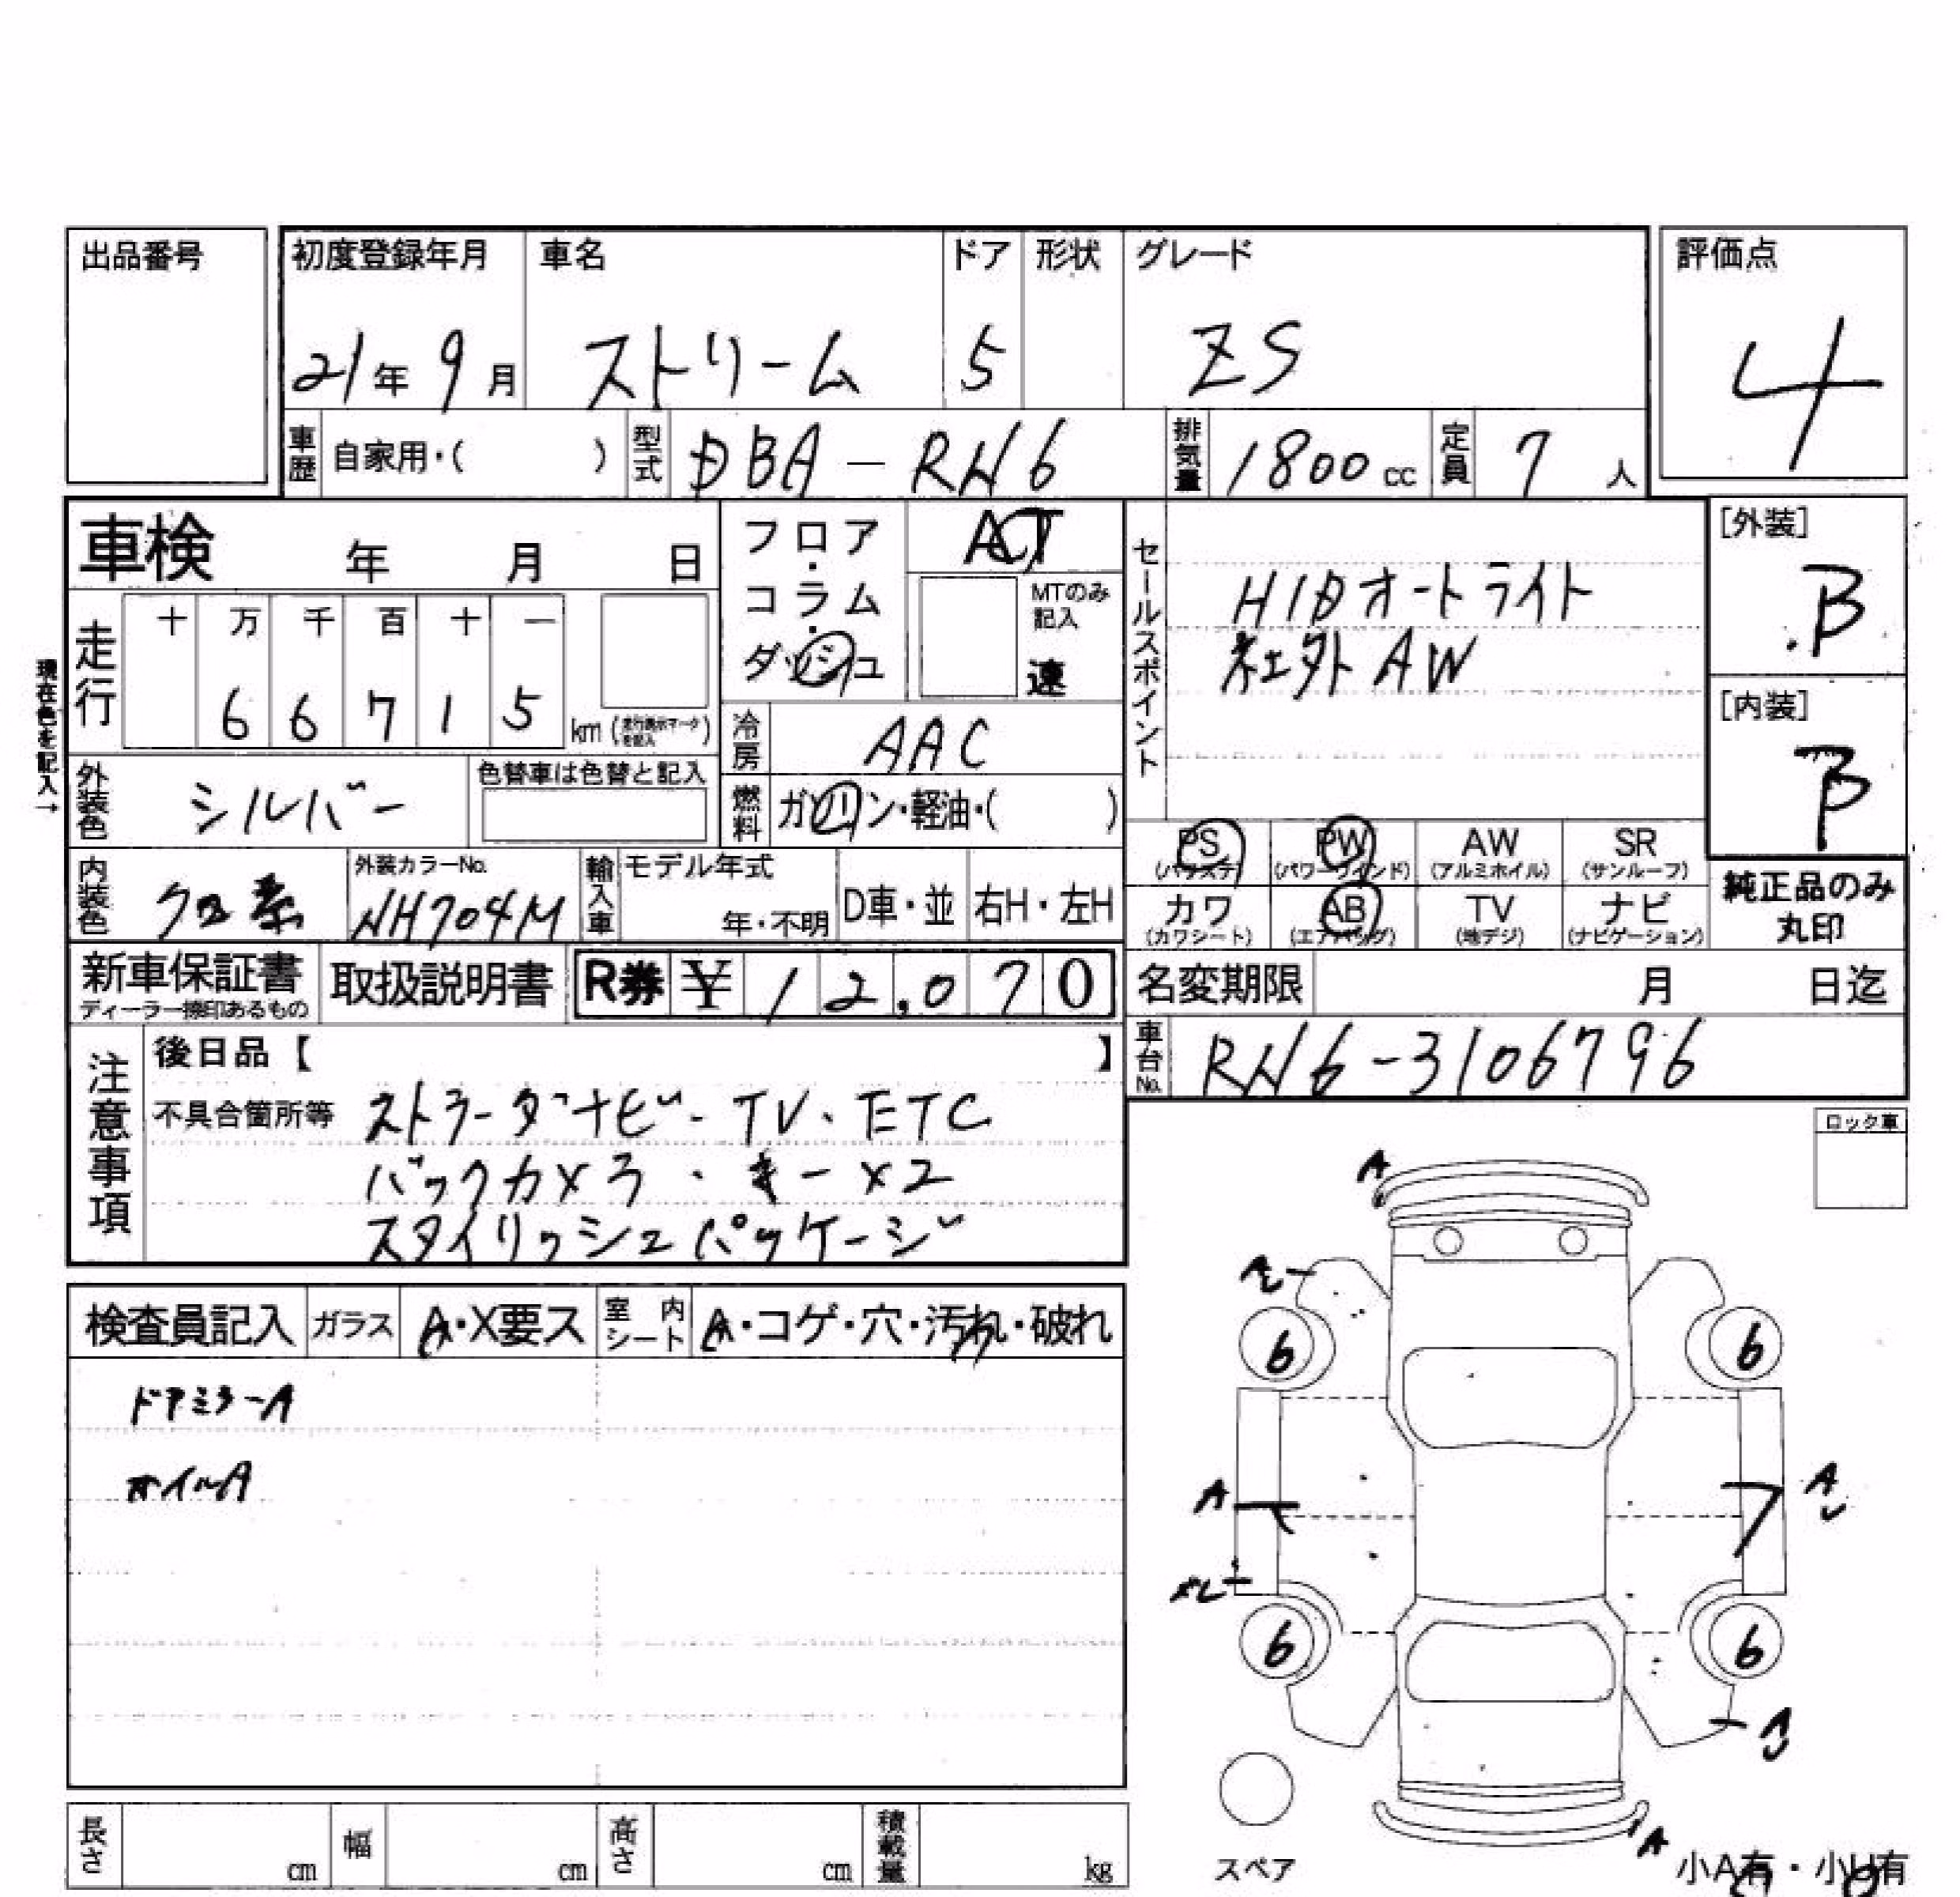 出品番号
初度登録年月 車名 ドア 形状 グレード 評価点
21年 9月 ストリーム 5 ZS 4
車歴 自家用・( ) 型式 DBA-RN6 排気量 1800 cc 定員 7 人
車検 年 月 日
フロア・コラム・ダッシュ
AT
MTのみ記入
速
セールスポイント
HIDオートライト
社外AW
[外装]
B
[内装]
B
現在色を記入→
走行 十 万 千 百 十 一
6 6 7 1 5 km (走行表示マークを記入)
冷房 AAC
外装色 シルバー 色替車は色替と記入
燃料 ガソリン・軽油・( )
PS (パワステ) PW (パワーウインド) AW (アルミホイル) SR (サンルーフ)
カワ (カワシート) AB (エアバッグ) TV (地デジ) ナビ (ナビゲーション)
純正品のみ
丸印
内装色 クロ系 外装カラーNo. NH704M 輸入車 モデル年式 年・不明 D車・並 右H・左H
新車保証書 ディーラー捺印あるもの 取扱説明書 R券 ¥12,070
名変期限 月 日迄
車台No. RN6-3106796
注意事項
後日品【 】
不具合箇所等 ストラーダナビ・TV・ETC
バックカメラ・キー×2
スタイリッシュパッケージ
ロック車
検査員記入 ガラス A・X要ス 室内シート A・コゲ・穴・汚れ・破れ
ドアミラーA
オイルA
A
A
6 6
A A
6 6
A
スペア
小A有・小U有
長さ cm 幅 cm 高さ cm 積載量 kg